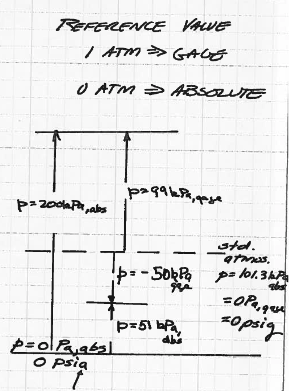 REFERENCE VALUE
1 ATM ⇒ GAGE
0 ATM ⇒ ABSOLUTE
p=200kPa,abs
p=99kPa,gage
std.
atmos.
p=101.3kPa
abs
=0Pa,gage
=0psig
p=-50kPa
gage
p=51kPa,
abs
p=0 Pa,abs
0 psia